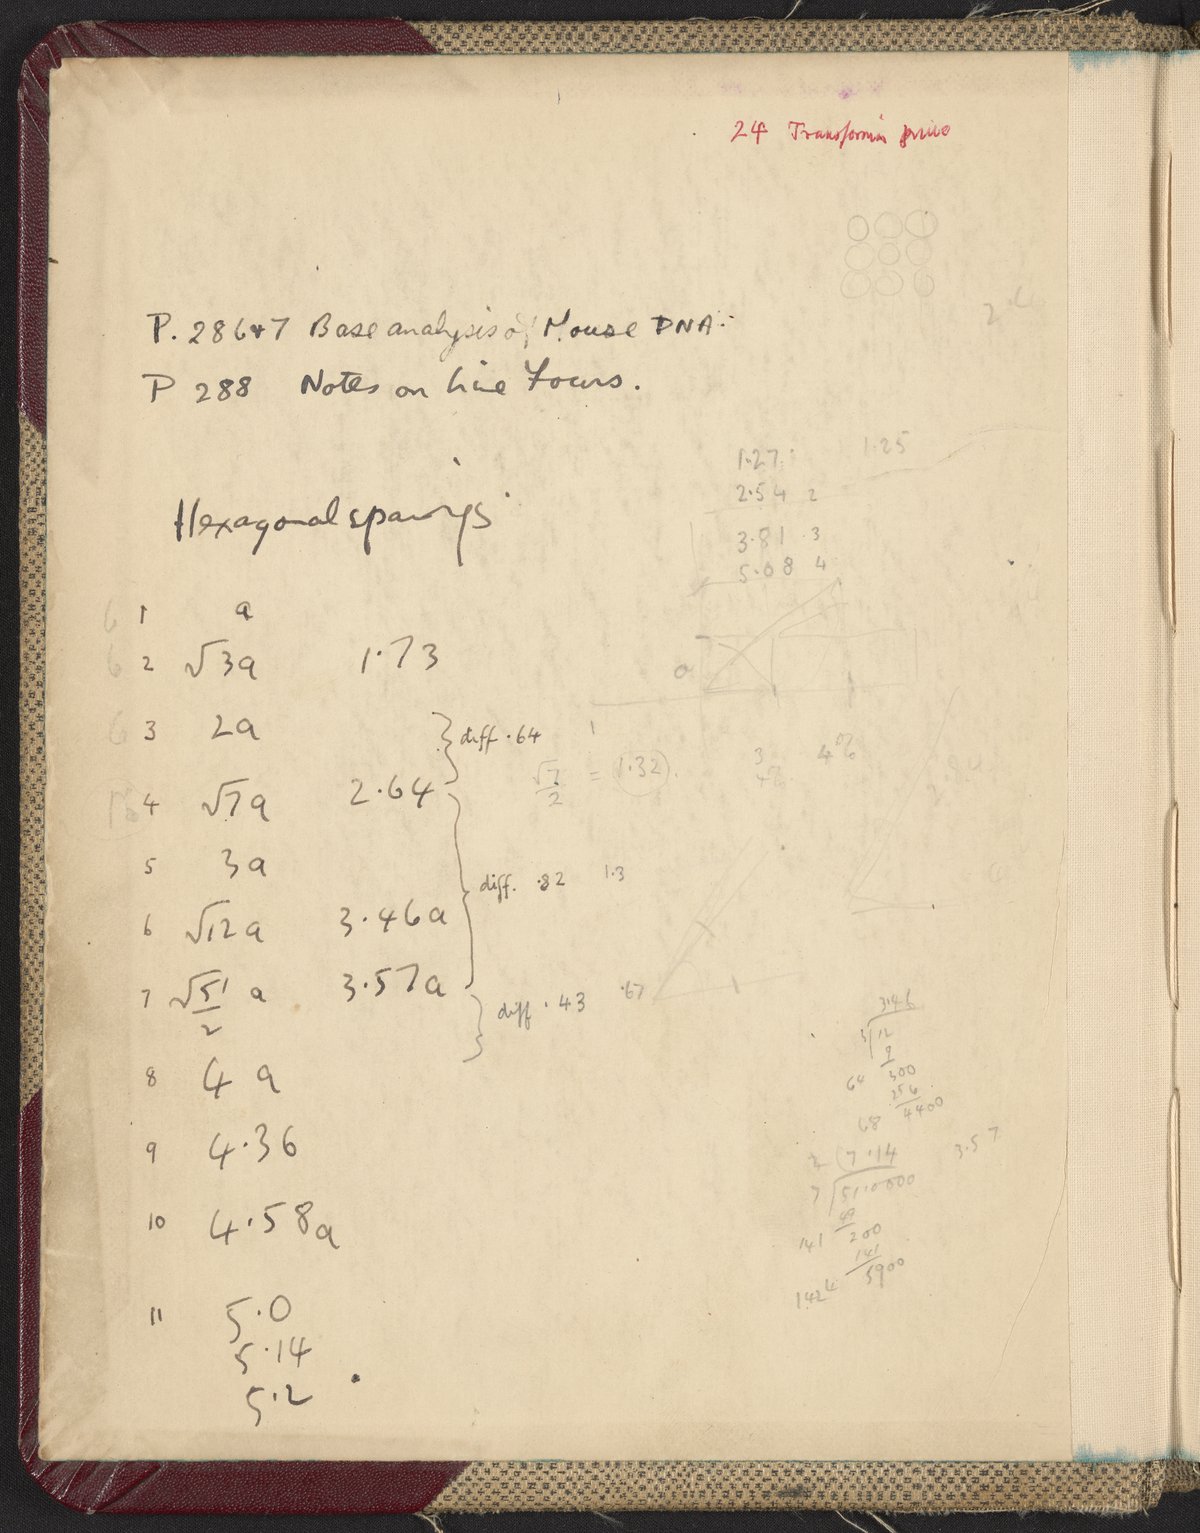 24 Transformin
P. 286+7 Base analysis of Mouse DNA.
P 288 Notes on Line Focus.
1.27 1.25
2.54 2
3.81 3
5.08 4
Hexagonal spacings
6 1 a
6 2 √3a 1.73
6 3 2a
} diff .64
√7/2 = 1.32
3 4%
4%
12 4 √7a 2.64
5 3a
} diff. .82 1.3
6 √12a 3.46a
7 √51/2 a 3.57a
} diff .43 .67
8 4a
9 4.36
10 4.58a
11 5.0
5.14
5.2
3.46
3 12
9
64 300
256
68 4400
2 7.14 3.57
7 51.0000
49
141 200
141
1424 5900